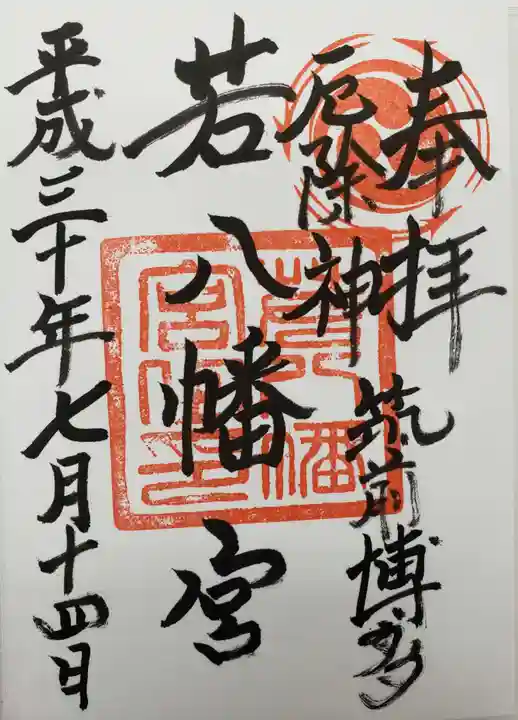 奉拝
筑前博多
厄除神
若八幡宮
平成三十年七月十四日